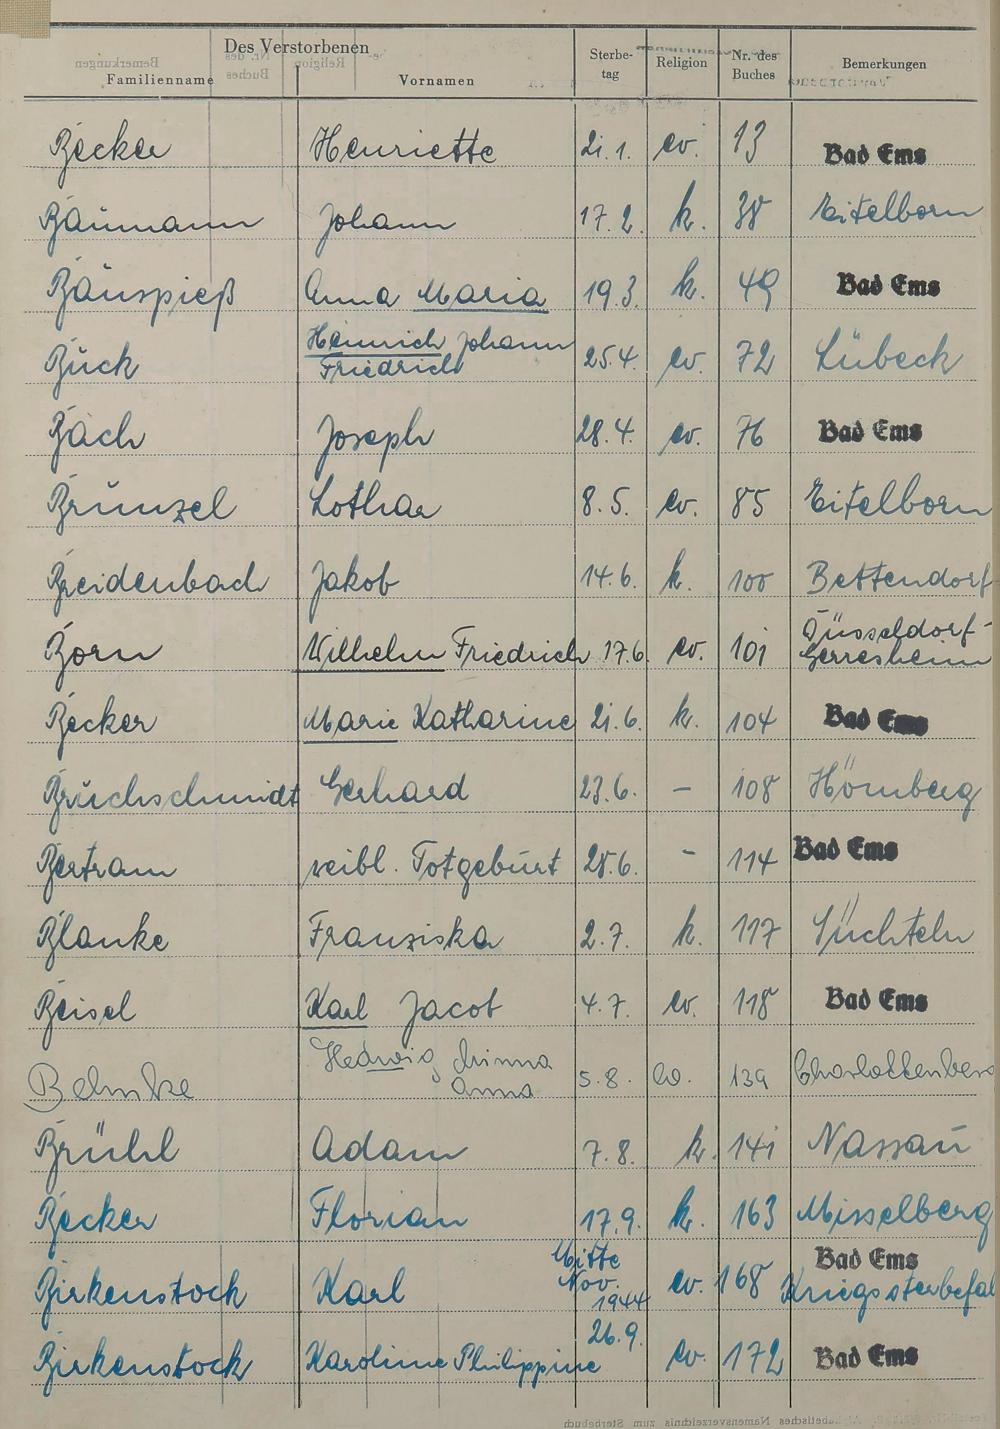 Des Verstorbenen
Familienname Vornamen Sterbe-tag Religion Nr. des Buches Bemerkungen
Becker Henriette 21.1. ev. 13 Bad Ems
Baumann Johann 17.2. k. 38 Eitelborn
Bauspieß Anna Maria 19.3. k. 49 Bad Ems
Buck Heinrich Johann Friedrich 25.4. ev. 72 Lübeck
Bach Joseph 28.4. ev. 76 Bad Ems
Brunzel Lothar 8.5. ev. 85 Eitelborn
Breidenbach Jakob 14.6. k. 100 Bettendorf
Born Wilhelm Friedrich 17.6. ev. 101 Düsseldorf-Gerresheim
Becker Marie Katharine 21.6. k. 104 Bad Ems
Bruchschmidt Gerhard 23.6. – 108 Hömberg
Bertram weibl. Totgeburt 28.6. - 114 Bad Ems
Blanke Franziska 2.7. k. 117 Süchteln
Beisel Karl Jacob 4.7. ev. 118 Bad Ems
Behnke Hedwig Minna Anna 5.8. ev. 139 Charlottenberg
Brühl Adam 7.8. k. 141 Nassau
Becker Florian 17.9. k. 163 Misselberg
Birkenstock Karl Mitte Nov. 1944 ev. 168 Bad Ems Kriegssterbefal
Birkenstock Karoline Philippine 26.9. ev. 172 Bad Ems